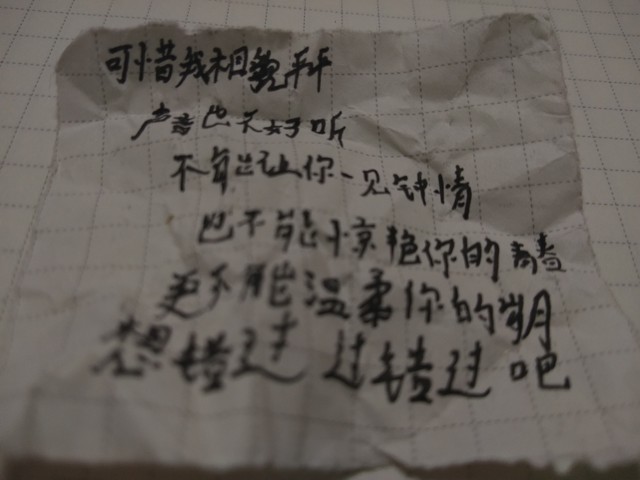 可惜我相貌平平
声音也不好听
不能让你一见钟情
也不能惊艳你的青春
更不能温柔你的岁月
想错过 过错过吧